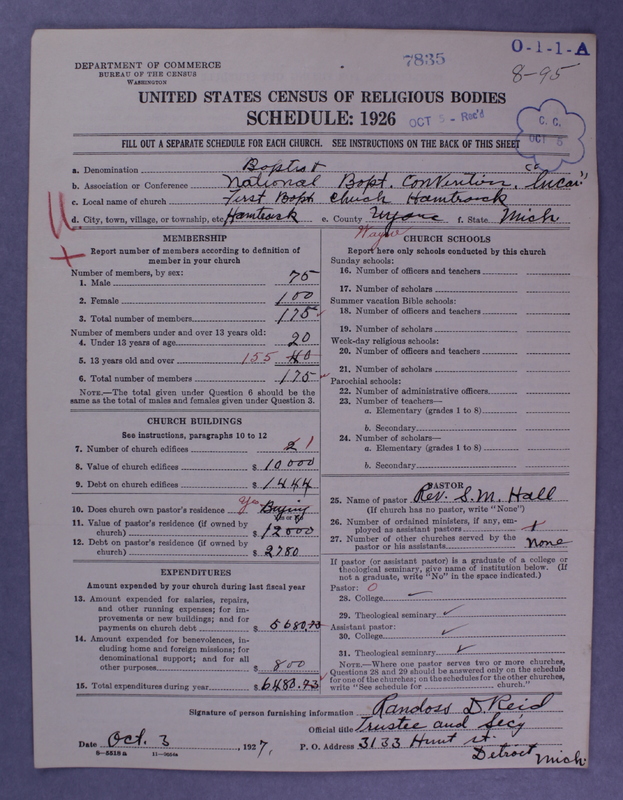 7835
O-1-1-A
8-95
DEPARTMENT OF COMMERCE
BUREAU OF THE CENSUS
WASHINGTON
UNITED STATES CENSUS OF RELIGIOUS BODIES
SCHEDULE: 1926
OCT 5 - Rec'd
C. C.
OCT 6
FILL OUT A SEPARATE SCHEDULE FOR EACH CHURCH. SEE INSTRUCTIONS ON THE BACK OF THIS SHEET
a. Denomination Baptist
b. Association or Conference National Bapt. Convention
c. Local name of church First Bapt church Hamtrack
d. City, town, village, or township, etc. Hamtrack e. County Wyane f. State Mich
Wayne
MEMBERSHIP
Report number of members according to definition of
member in your church
Number of members, by sex:
1. Male 75
2. Female 100
3. Total number of members 175
Number of members under and over 13 years old:
4. Under 13 years of age 20
5. 13 years old and over 155 40
6. Total number of members 175
NOTE.—The total given under Question 6 should be the
same as the total of males and females given under Question 3.
CHURCH BUILDINGS
See instructions, paragraphs 10 to 12
7. Number of church edifices 2 1
8. Value of church edifices $ 10000
9. Debt on church edifices $ 1444
10. Does church own pastor's residence Yes Buying
(Yes or No)
11. Value of pastor's residence (if owned by
church) $ 12000
12. Debt on pastor's residence (if owned by
church) $ 2780
EXPENDITURES
Amount expended by your church during last fiscal year
13. Amount expended for salaries, repairs,
and other running expenses; for im-
provements or new buildings; and for
payments on church debt $ 5680.73
14. Amount expended for benevolences, in-
cluding home and foreign missions; for
denominational support; and for all
other purposes $ 800
15. Total expenditures during year $ 6480.73
CHURCH SCHOOLS
Report here only schools conducted by this church
Sunday schools:
16. Number of officers and teachers
17. Number of scholars
Summer vacation Bible schools:
18. Number of officers and teachers
19. Number of scholars
Week-day religious schools:
20. Number of officers and teachers
21. Number of scholars
Parochial schools:
22. Number of administrative officers
23. Number of teachers—
a. Elementary (grades 1 to 8)
b. Secondary
24. Number of scholars—
a. Elementary (grades 1 to 8)
b. Secondary
PASTOR
25. Name of pastor Rev. S. M. Hall
(If church has no pastor, write "None")
26. Number of ordained ministers, if any, em-
ployed as assistant pastors
27. Number of other churches served by the
pastor or his assistants None
If pastor (or assistant pastor) is a graduate of a college or
theological seminary, give name of institution below. (If
not a graduate, write "No" in the space indicated.)
Pastor: O
28. College
29. Theological seminary
Assistant pastor:
30. College
31. Theological seminary
NOTE.—Where one pastor serves two or more churches,
Questions 28 and 29 should be answered only on the schedule
for one of the churches; on the schedules for the other churches,
write "See schedule for church."
Signature of person furnishing information Randoss D. Reid
Official title Trustee and Sec'y
Date Oct. 3, 1927. P. O. Address 3133 Hunt st.
Detroit Mich.
8—5518a